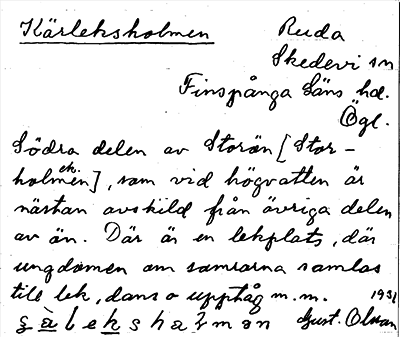 Kärleksholmen
Ruda
Skedevi sn
Finspånga läns hd.
Ögl.
Södra delen av Storön [Stor-
ek.
holmen], som vid högvatten är
nästan avskild från övriga delen
av ön. Där är en lekplats, där
ungdomen om somrarna samlas
till lek, dans o upptåg m.m.
1931
Gust. Olsson